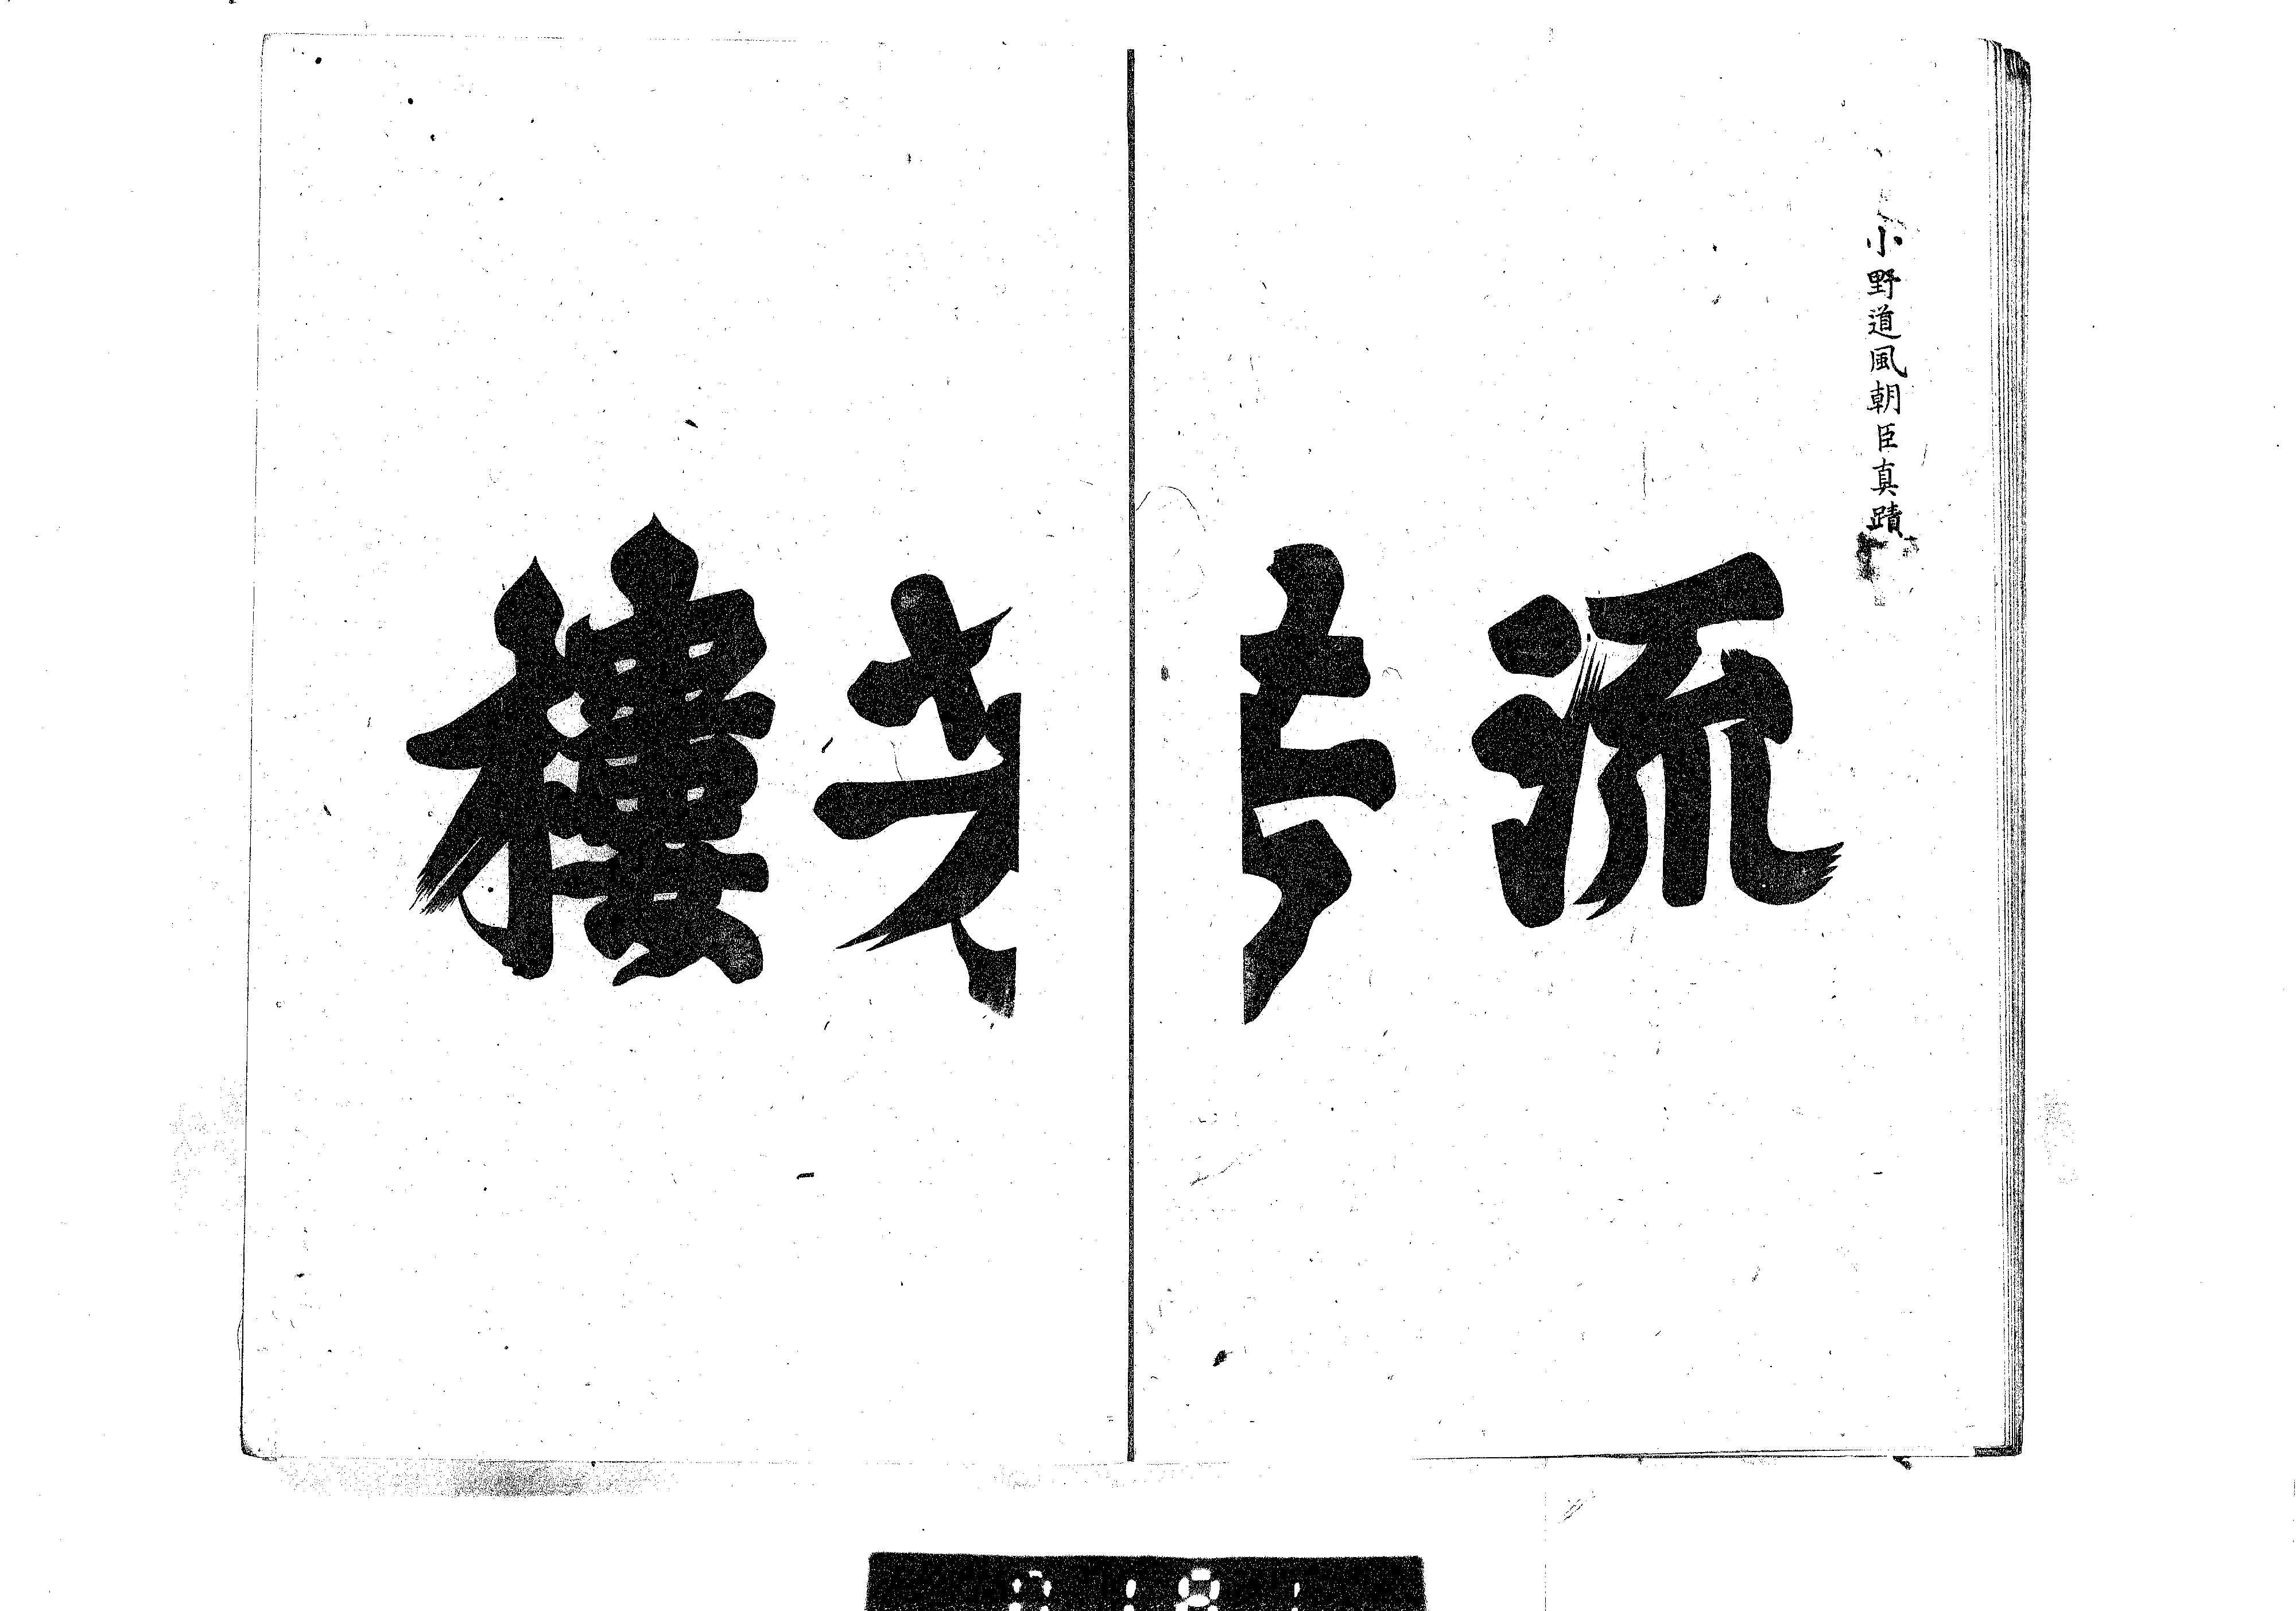 小野道風朝臣真蹟
流芳樓